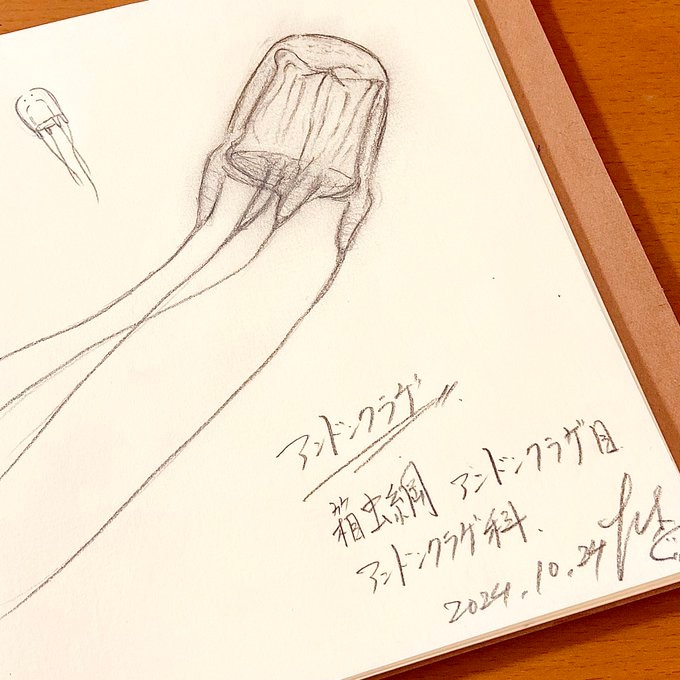 アンドンクラゲ
箱虫綱 アンドンクラゲ目
アンドンクラゲ科.
2024.10.24